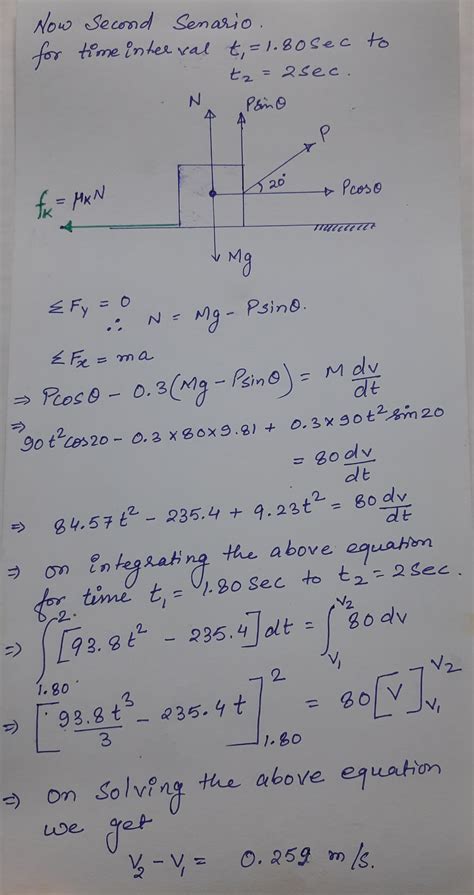 Now Second Senario.
for time inter val t₁ = 1.80 sec to
t₂ = 2 sec.
N
Psinθ
P
20°
Pcosθ
fK = μKN
Mg
ΣFy = 0
∴ N = Mg - Psinθ.
ΣFx = ma
⇒ Pcosθ - 0.3(Mg - Psinθ) = M dv/dt
⇒ 90t² cos20 - 0.3 × 80 × 9.81 + 0.3 × 90t² sin20
= 80 dv/dt
⇒ 84.57t² - 235.4 + 9.23t² = 80 dv/dt
⇒ on integrating the above equation
for time t₁ = 1.80 sec to t₂ = 2 sec.
⇒ ∫_{1.80}^{2} [93.8t² - 235.4] dt = ∫_{V₁}^{V₂} 80 dv
⇒ [93.8t³/3 - 235.4t]_{1.80}^{2} = 80[V]_{V₁}^{V₂}
⇒ on solving the above equation
we get
V₂ - V₁ = 0.259 m/s.